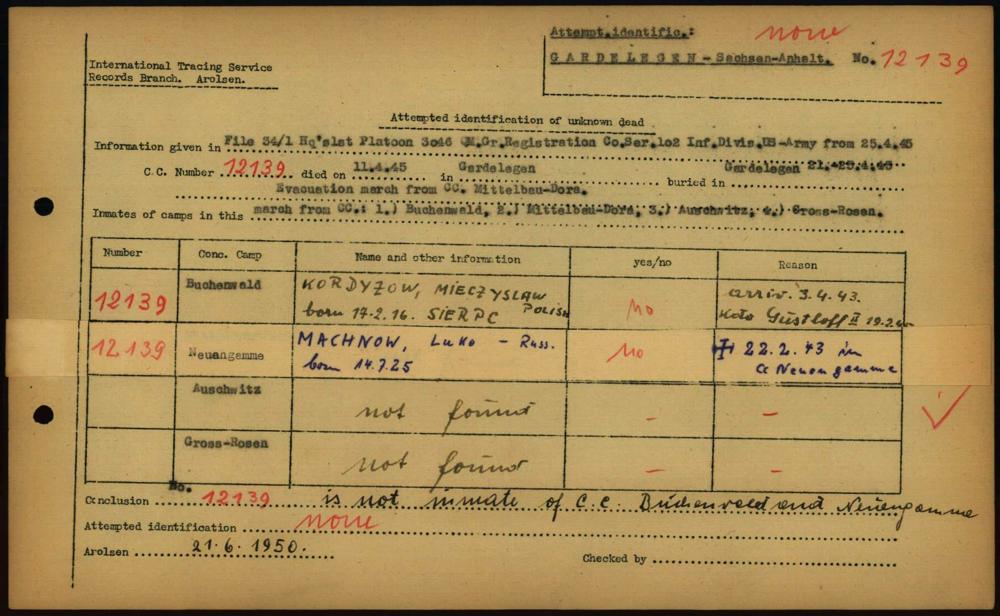 Attempt.identific.: none
GARDELEGEN - Sachsen-Anhalt. No. 12139
International Tracing Service
Records Branch. Arolsen.
Attempted identification of unknown dead
Information given in File 34/1 Hq'slst Platoon 3046 QM.Gr.Registration Co.Ser.1o2 Inf.Divis.US-Army from 25.4.45
C.C. Number 12139 died on 11.4.45 in Gardelegen buried in Gardelegen 21.-25.4.45
Evacuation march from CC. Mittelbau-Dora.
Inmates of camps in this march from CC.: 1.) Buchenwald, 2.) Mittelbau-Dora, 3.) Auschwitz, 4.) Gross-Rosen.
Number Conc. Camp Name and other information yes/no Reason
12139 Buchenwald KORDYZOW, MIECZYSLAW POLISH no arriv. 3.4.43.
born 17.2.16. SIERPC Kdo Gustloff II
12139 Neuengamme MACHNOW, Luko - Russ. no 22.2.43 in
born 14.7.25 CC Neuengamme
Auschwitz not found - -
Gross-Rosen not found - -
Conclusion No. 12139 is not inmate of C.C. Buchenwald and Neuengamme
Attempted identification none
Arolsen 21.6.1950.
Checked by